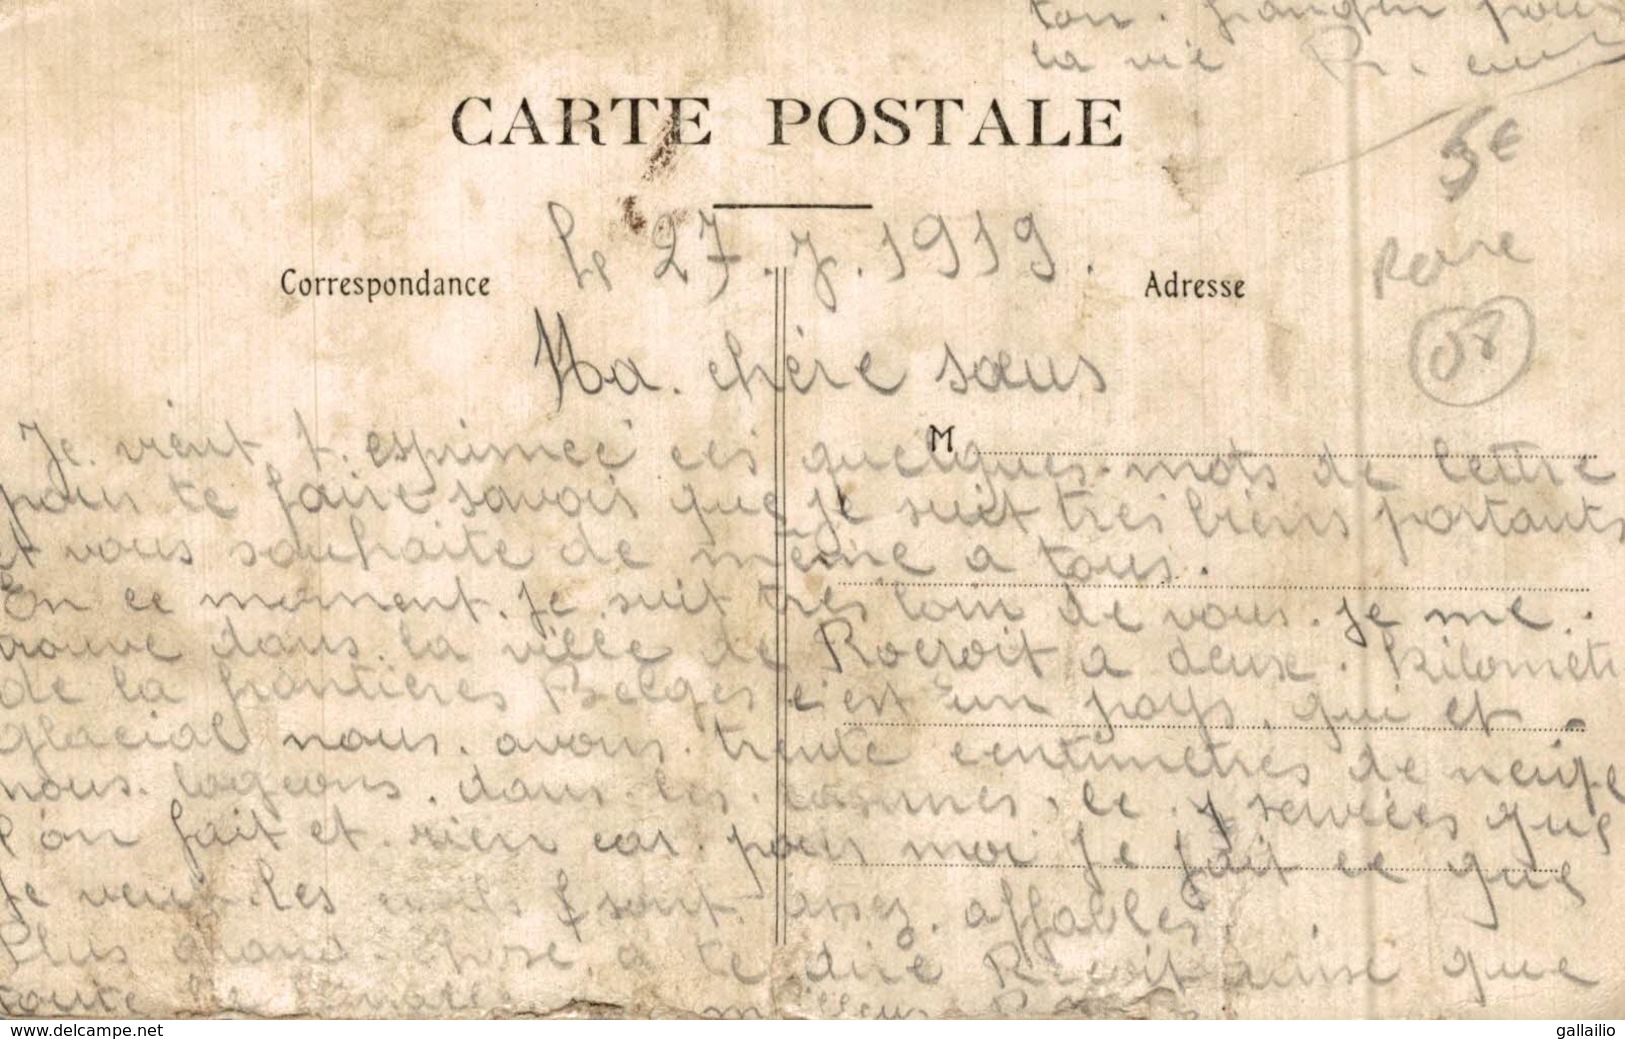 ton. frangin pour
la vie
CARTE POSTALE
5€
Rare
08
Correspondance
Adresse
le 27. J. 1919.
Ma. chére sœus
M
Je. vient t. esprimeé ces quelques. mots de lettre
pour te faire savoir que je suit très biens portants
et vous souhaite de même a tous.
En ce moment. je suit très loin de vous. je me.
trouve dans. la ville de Rocroit a deuse. kilométr
de la frontières Belges c'est un pays. qui et
glacial nous. avons. trente centimetres de neige
nous. logeons. dans. les. ce. services que
l'on fait et. rien car. pour moi je fait ce que
je veux. les sont assez. affables
Plus grand. chose. a te dire Recoit ausse que
toute
www.delcampe.net
gallailio